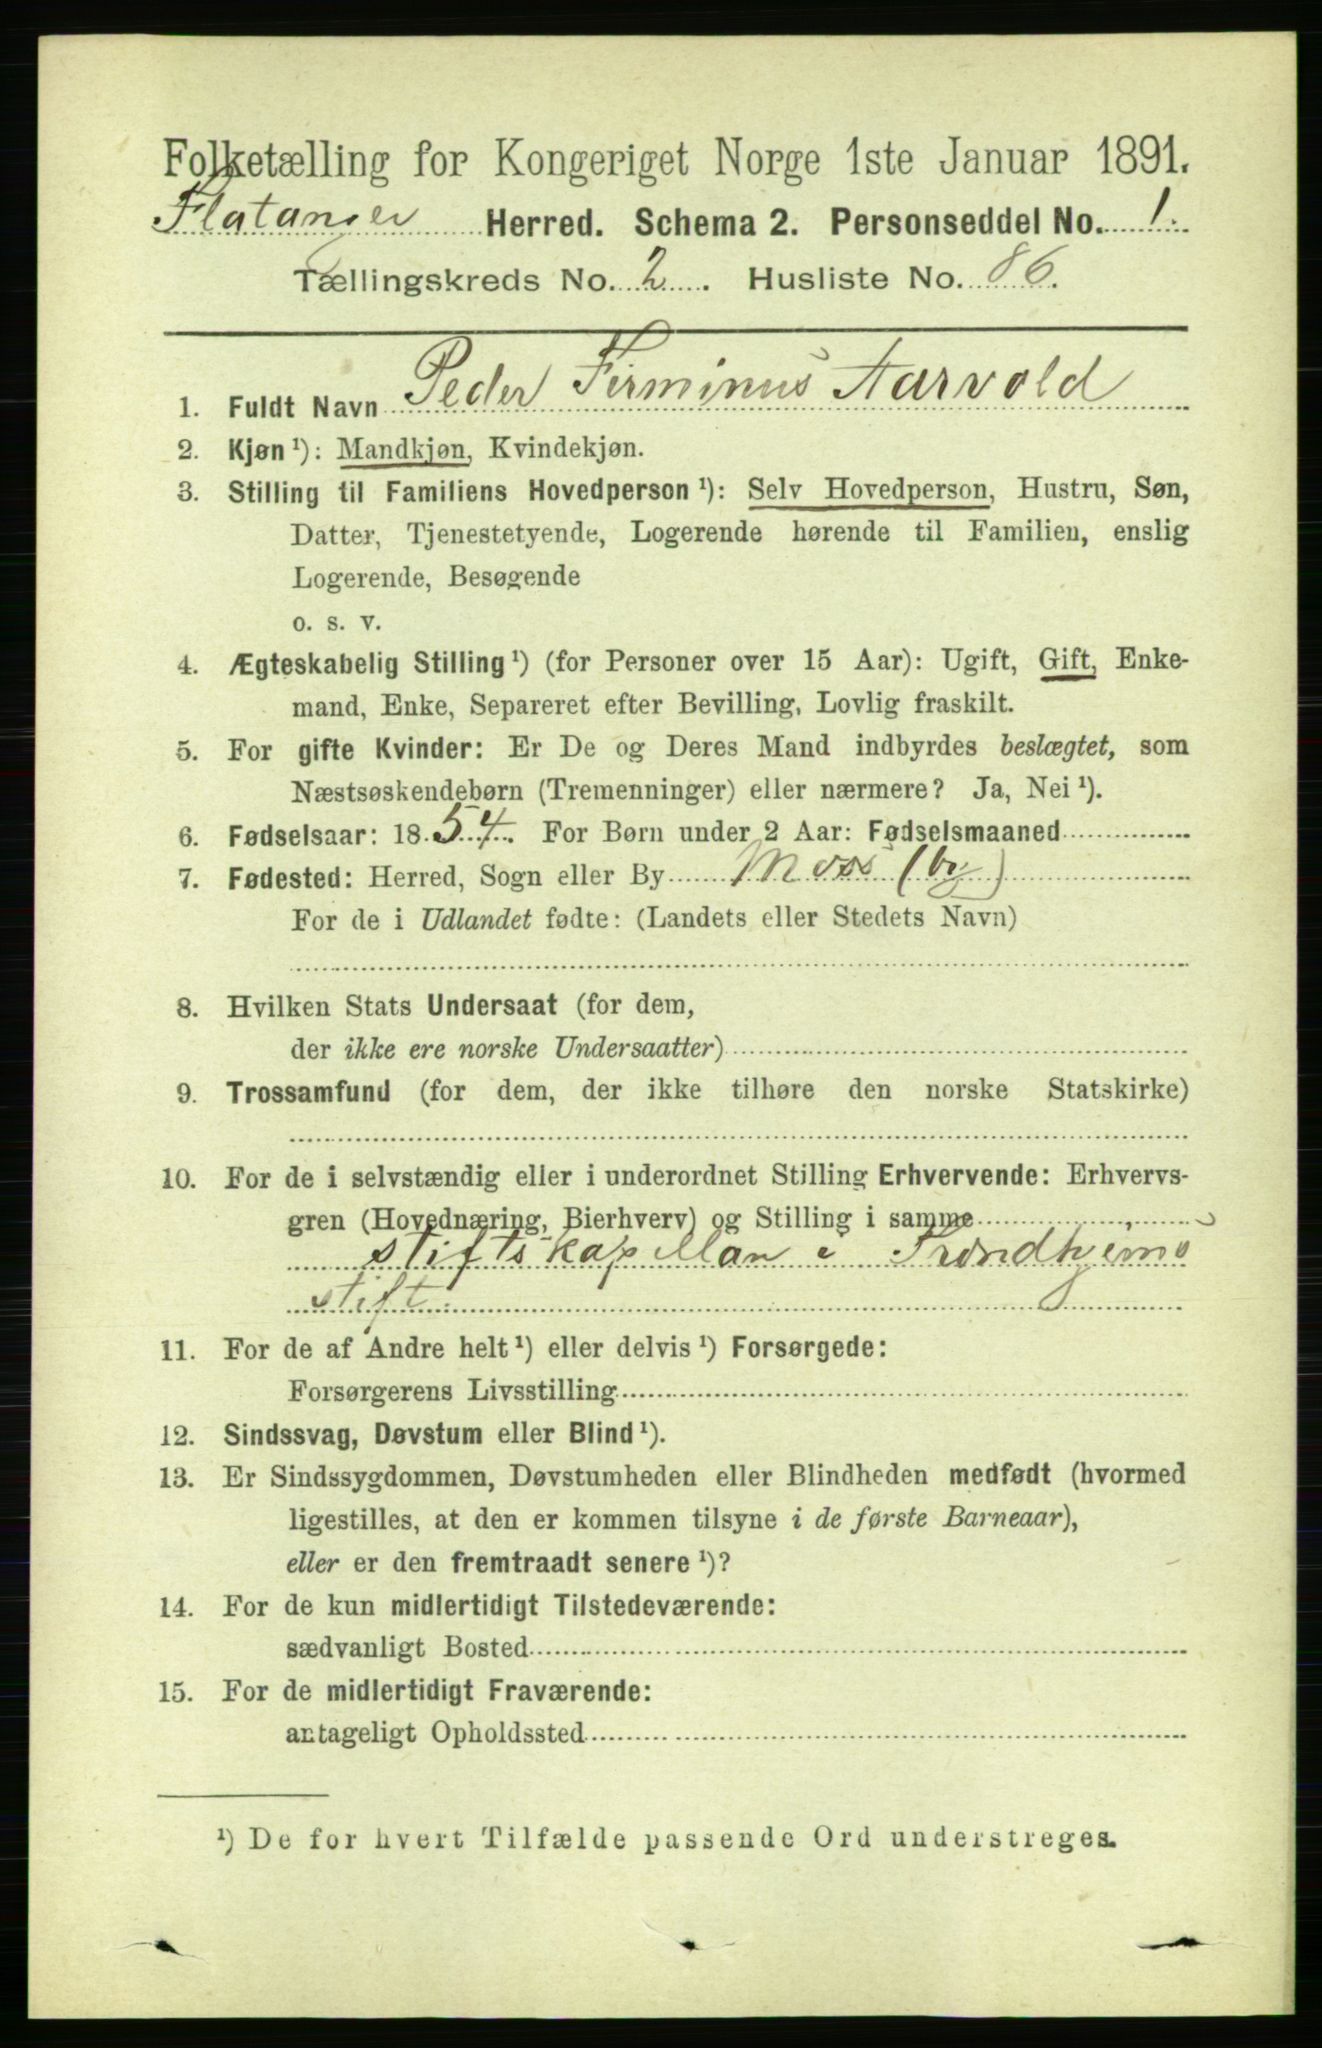 Folketælling for Kongeriget Norge 1ste Januar 1891.
Flatanger Herred. Schema 2. Personseddel No. 1.
Tællingskreds No. 2. Husliste No. 86.
1. Fuldt Navn Peder Firminus Aarvold
2. Kjøn ¹): Mandkjøn, Kvindekjøn.
3. Stilling til Familiens Hovedperson ¹): Selv Hovedperson, Hustru, Søn,
Datter, Tjenestetyende, Logerende hørende til Familien, enslig
Logerende, Besøgende
o. s. v.
4. Ægteskabelig Stilling ¹) (for Personer over 15 Aar): Ugift, Gift, Enke-
mand, Enke, Separeret efter Bevilling, Lovlig fraskilt.
5. For gifte Kvinder: Er De og Deres Mand indbyrdes beslægtet, som
Næstsøskendebørn (Tremenninger) eller nærmere? Ja, Nei ¹).
6. Fødselsaar: 1854. For Børn under 2 Aar: Fødselsmaaned
7. Fødested: Herred, Sogn eller By Moss (by)
For de i Udlandet fødte: (Landets eller Stedets Navn)
8. Hvilken Stats Undersaat (for dem,
der ikke ere norske Undersaatter)
9. Trossamfund (for dem, der ikke tilhøre den norske Statskirke)
10. For de i selvstændig eller i underordnet Stilling Erhvervende: Erhvervs-
gren (Hovednæring, Bierhverv) og Stilling i samme
stiftskapellan i Trondhjems
stift.
11. For de af Andre helt ¹) eller delvis ¹) Forsørgede:
Forsørgerens Livsstilling
12. Sindssvag, Døvstum eller Blind ¹).
13. Er Sindssygdommen, Døvstumheden eller Blindheden medfødt (hvormed
ligestilles, at den er kommen tilsyne i de første Barneaar),
eller er den fremtraadt senere ¹)?
14. For de kun midlertidigt Tilstedeværende:
sædvanligt Bosted
15. For de midlertidigt Fraværende:
antageligt Opholdssted
¹) De for hvert Tilfælde passende Ord understreges.